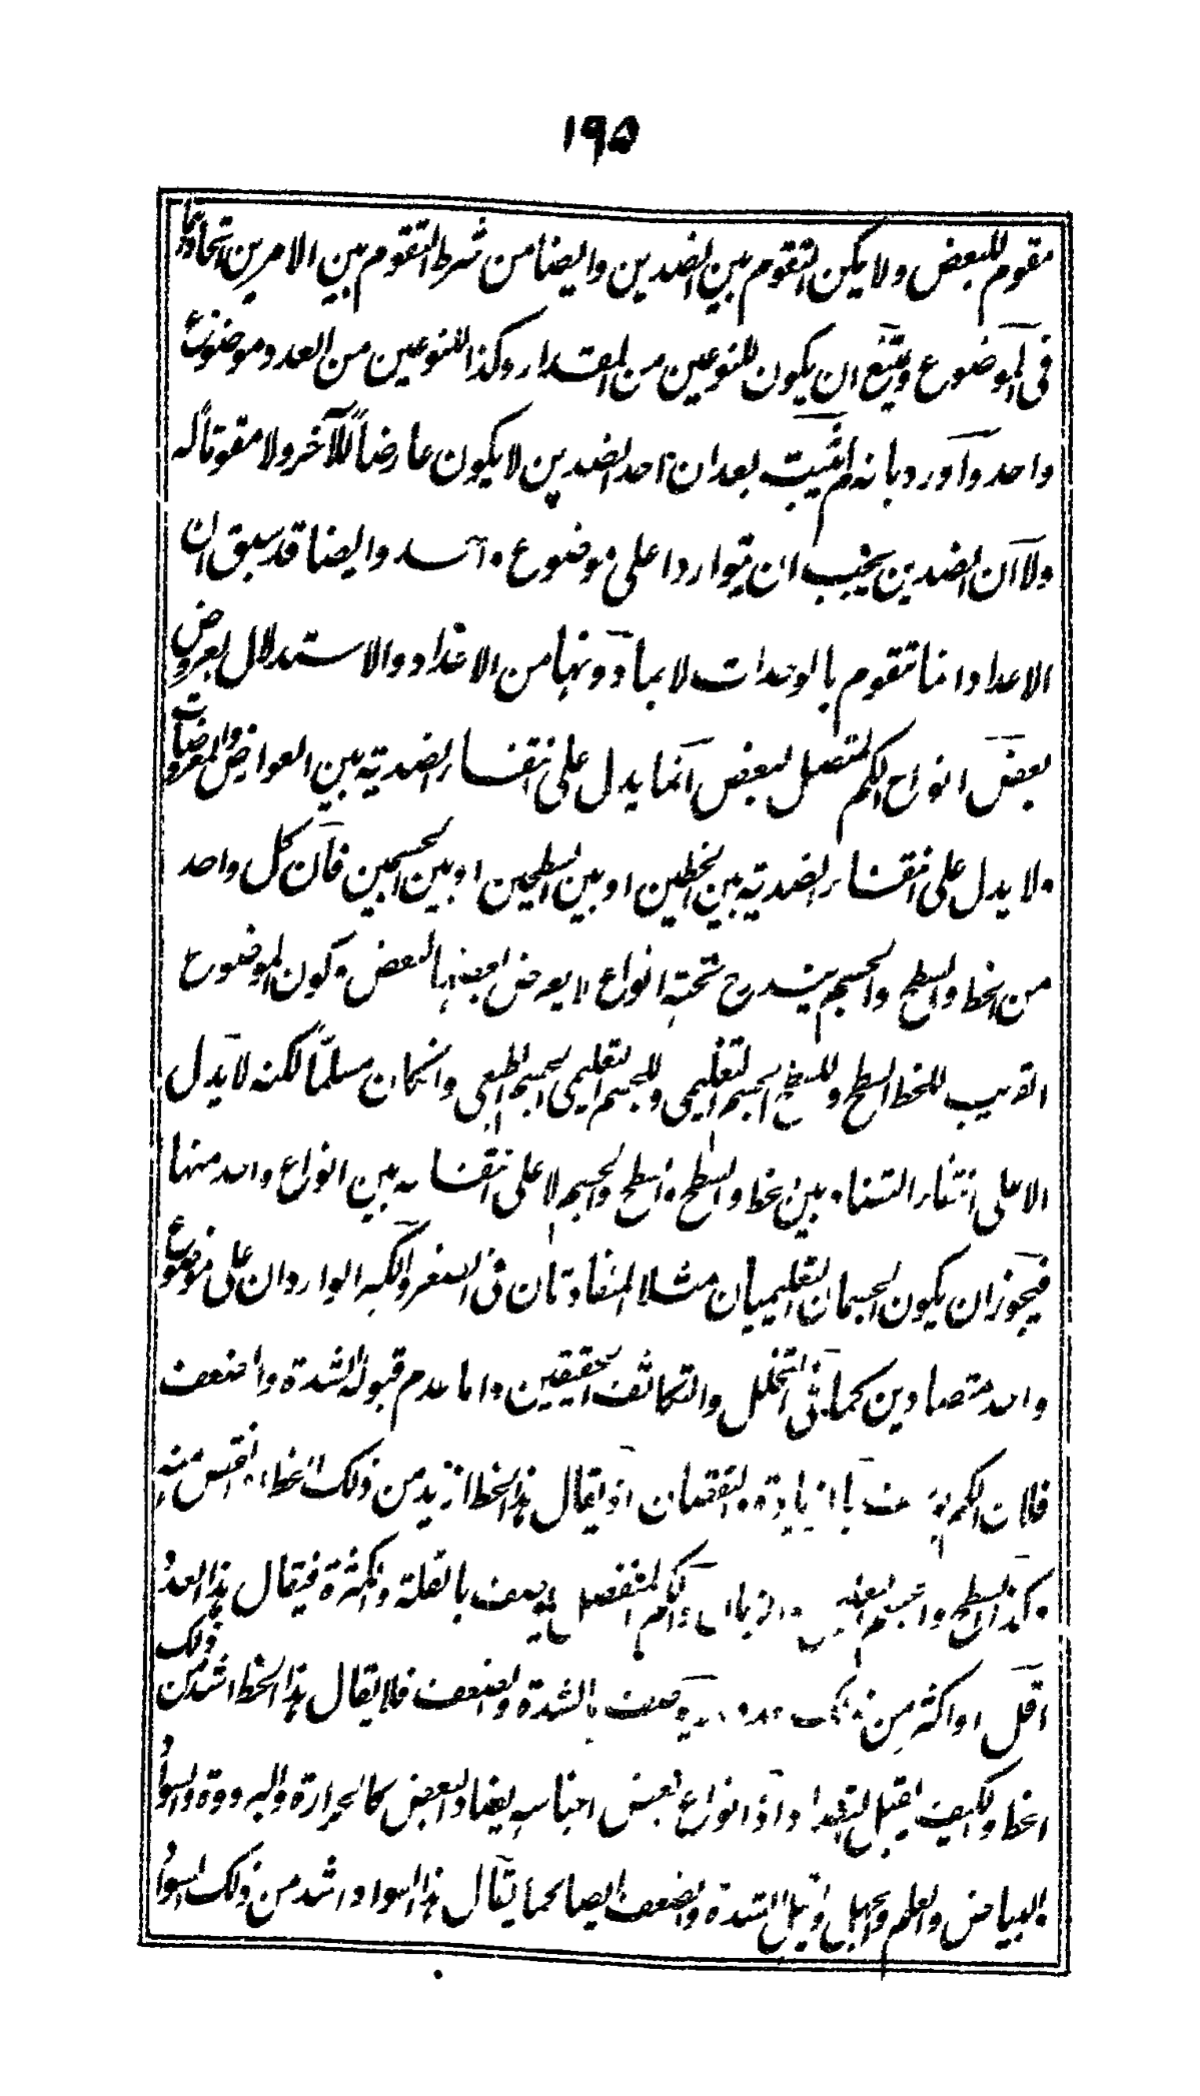 ١٩٥
مقوم للبعض ولا يمكن التقوم بين الضدين وايضا من شرط التقوم بين الامرين اتحادهما
فى الموضوع ويمتنع ان يكون للنوعين من المقدار وكذا للنوعين من العدد موضوع
واحد وآورد بانه لم يثبت بعد ان احد الضدين لا يكون عارضاً للآخر ولا مقوماً له
ولا ان الضدين يجب ان يتواردا على موضوع واحد وايضا قد سبق ان
الاعداد انما تتقوم بالوحدات لا بما دونها من الاعداد والاستدلال بعروض
بعض انواع الكم المتصل لبعض انما يدل على انتفاء الضدية بين العوارض والمعروضات
ولا يدل على انتفاء الضدية بين الخطين او بين السطحين او بين الجسمين فان كل واحد
من الخط والسطح والجسم يندرج تحته انواع لا يعرض بعضها لبعض وكون الموضوع
القريب للخط السطح وللسطح الجسم التعليمى وللجسم التعليمى الجسم الطبعى وان كان مسلماً لكنه لا يدل
الا على انتفاء التضاد بين الخط والسطح والسطح والجسم لا على انتفائه بين انواع واحد منها
فيجوز ان يكون الجسمان التعليميان مثلا المتفاوتان فى الصغر والكبر الواردان على موضوع
واحد متضادين كما فى التخلخل والتكاثف الحقيقين واما عدم قبوله الشدة والضعف
فلان الكم يوصف بالزيادة والنقصان اذ يقال هذا الخط ازيد من ذلك الخط او انقص منه
وكذا السطح والجسم التعليمى والزمان والكم المنفصل يوصف بالقلة والكثرة فيقال هذا العدد
اقل او اكثر من ذلك العدد ولا يوصف بالشدة والضعف فلا يقال هذا الخط اشد من ذلك
الخط والكيف يقبل التضاد اذ انواع بعض اجناسه يضاد البعض كالحرارة والبرودة والسواد
والبياض والعلم والجهل ويقبل الشدة والضعف ايضا كما يقال هذا السواد اشد من ذلك السواد